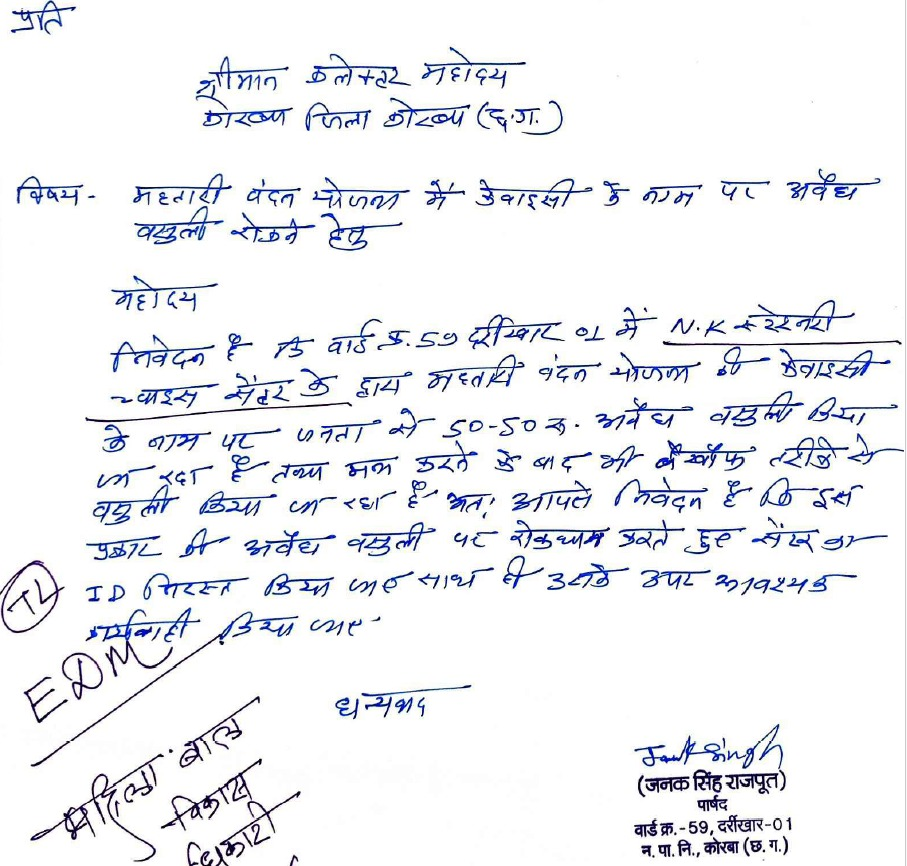 प्रति
श्रीमान कलेक्टर महोदय
कोरबा जिला कोरबा (छ.ग.)
विषय- महतारी वंदन योजना में केवाइसी के नाम पर अवैध
वसुली रोकने हेतु
महोदय
निवेदन है कि वार्ड क्र. 59 दर्रीखार 01 में N.K स्टेशनरी
च्वाइस सेंटर के द्वारा महतारी वंदन योजना की केवाइसी
के नाम पर जनता से 50-50 रु. अवैध वसुली किया
जा रहा है तथा मना करने के बाद भी बेखौफ तरीके से
वसुली किया जा रहा है अत: आपसे निवेदन है कि इस
प्रकार की अवैध वसुली पर रोकथाम करते हुए सेंटर का
ID निरस्त किया जाए साथ ही उसके उपर आवश्यक
कार्यवाही किया जाए
TL
EDM
धन्यवाद
महिला बाल
विकास
अधिकारी
Janak Singh
(जनक सिंह राजपूत)
पार्षद
वार्ड क्र.-59, दर्रीखार-01
न. पा. नि., कोरबा (छ. ग.)